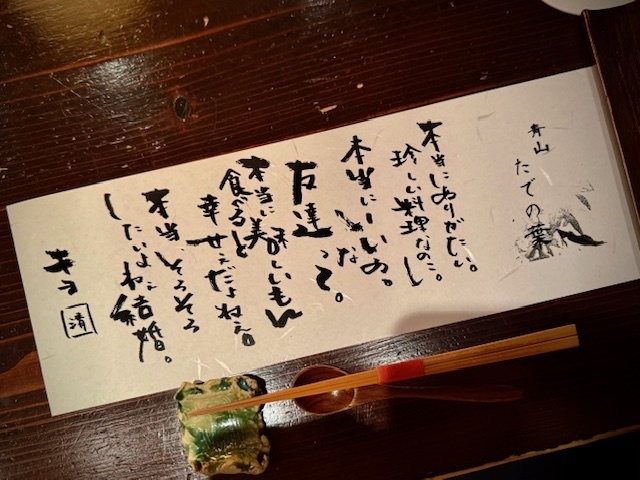 青山
たての葉
本当にありがたい。
珍しい料理なのに。
本当にいいの。
いいな
友達って。
本当に美味しいもん
食べると
幸せだよねぇ。
本当、そろそろ
したいよねぇ結婚。
キヨ
清